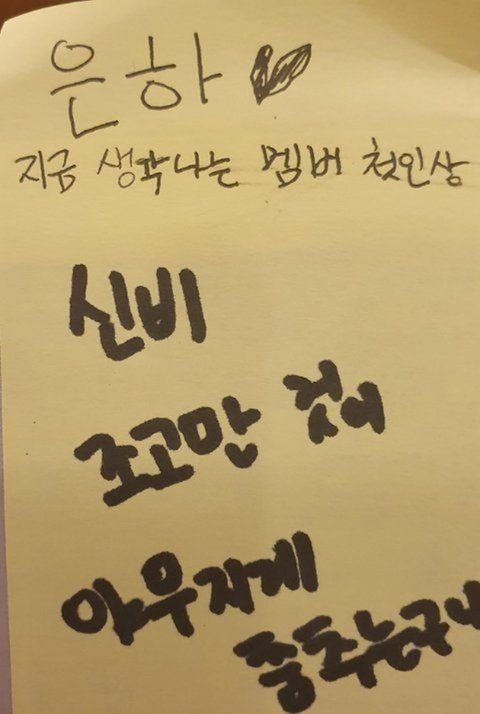 은하
지금 생각나는 멤버 첫인상
신비
조고만 것이
야무지게
춤추는구나